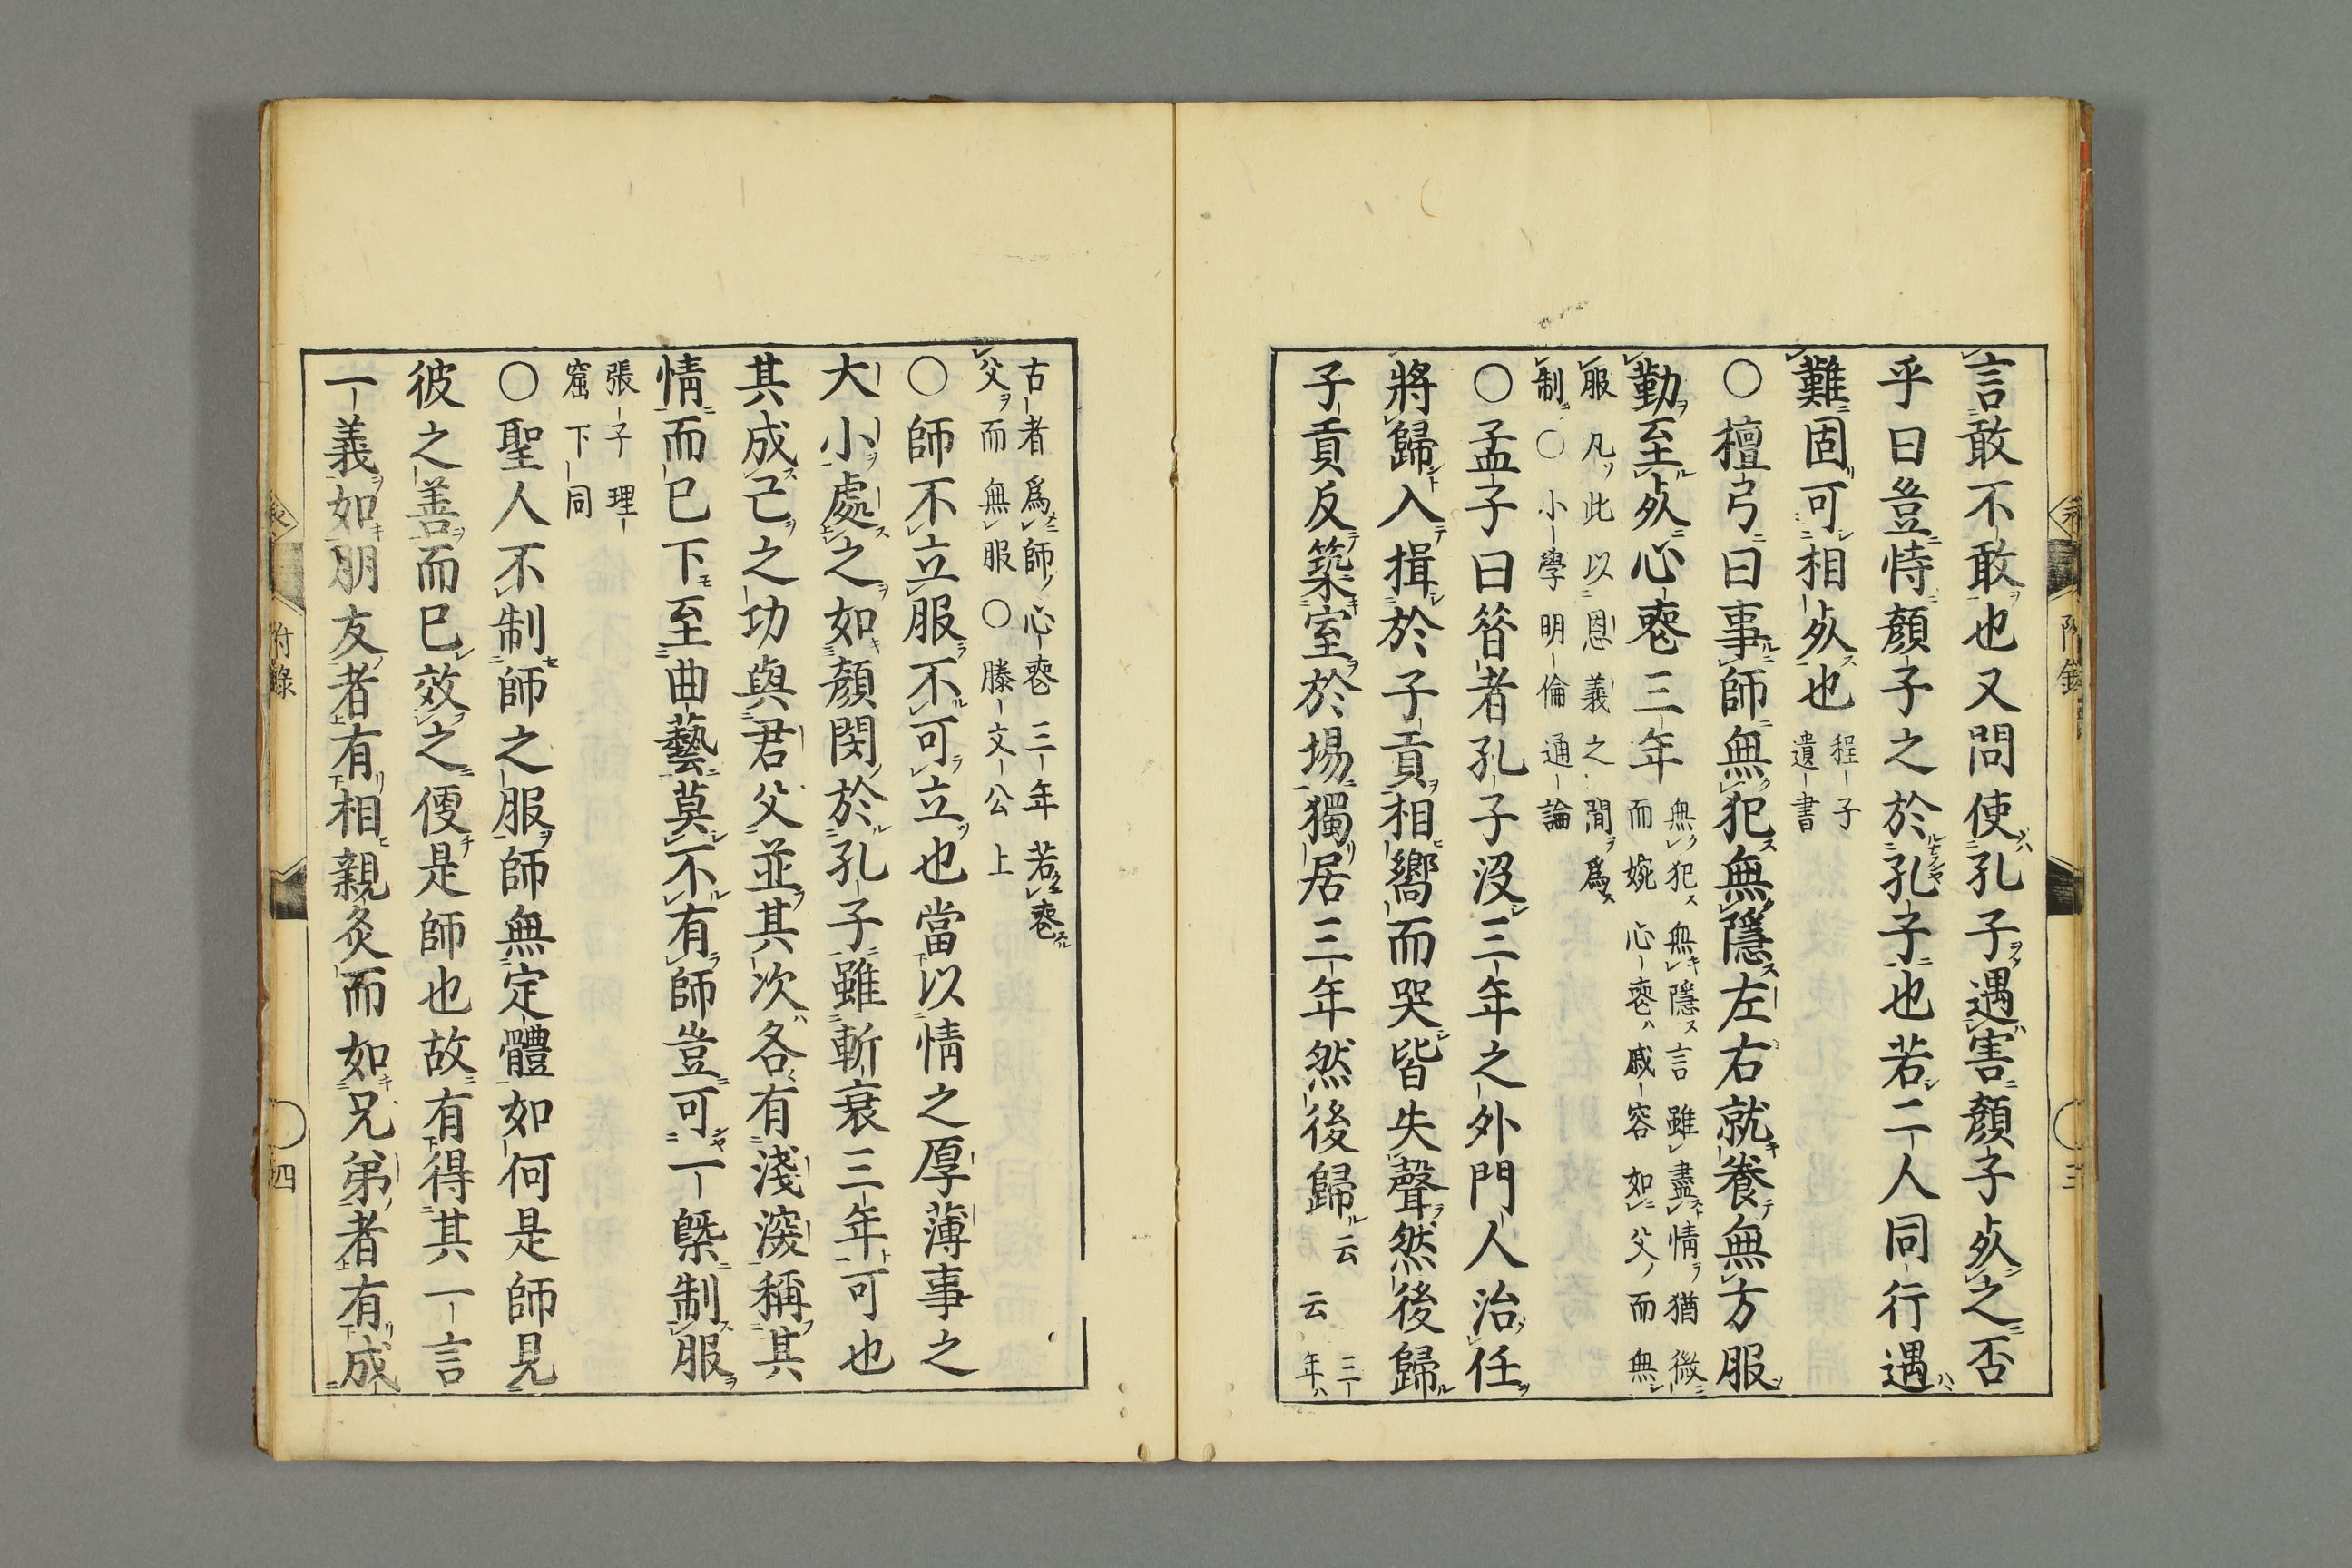 言敢不敢也又問使孔子遇害顏子死之否
乎曰豈恃顏子之於孔子也若二人同行遇
難固可相死也
程子
遺書
〇檀弓曰事師無犯無隱左右就養無方服
勤至死心喪三年
無犯無隱言雖盡情猶微
而婉心喪戚容如父而無
服凡此以恩義之閒爲
制〇小學明倫通論
〇孟子曰昝者孔子沒三年之外門人治任
將歸入揖於子貢相嚮而哭皆失聲然後歸
子貢反築室於場獨居三年然後歸
云
云
三
年
古者爲師心喪三年若喪
父而無服〇滕文公上
〇師不立服不可立也當以情之厚薄事之
大小處之如顏閔於孔子雖斬衰三年可也
其成己之功與君父並其次各有淺深稱其
情而已下至曲藝莫不有師豈可一槩制服
張子理
窟下同
〇聖人不制師之服師無定體如何是師見
彼之善而已效之便是師也故有得其一言
一義如朋友者有相親炙而如兄弟者有成
附錄
三
附錄
四